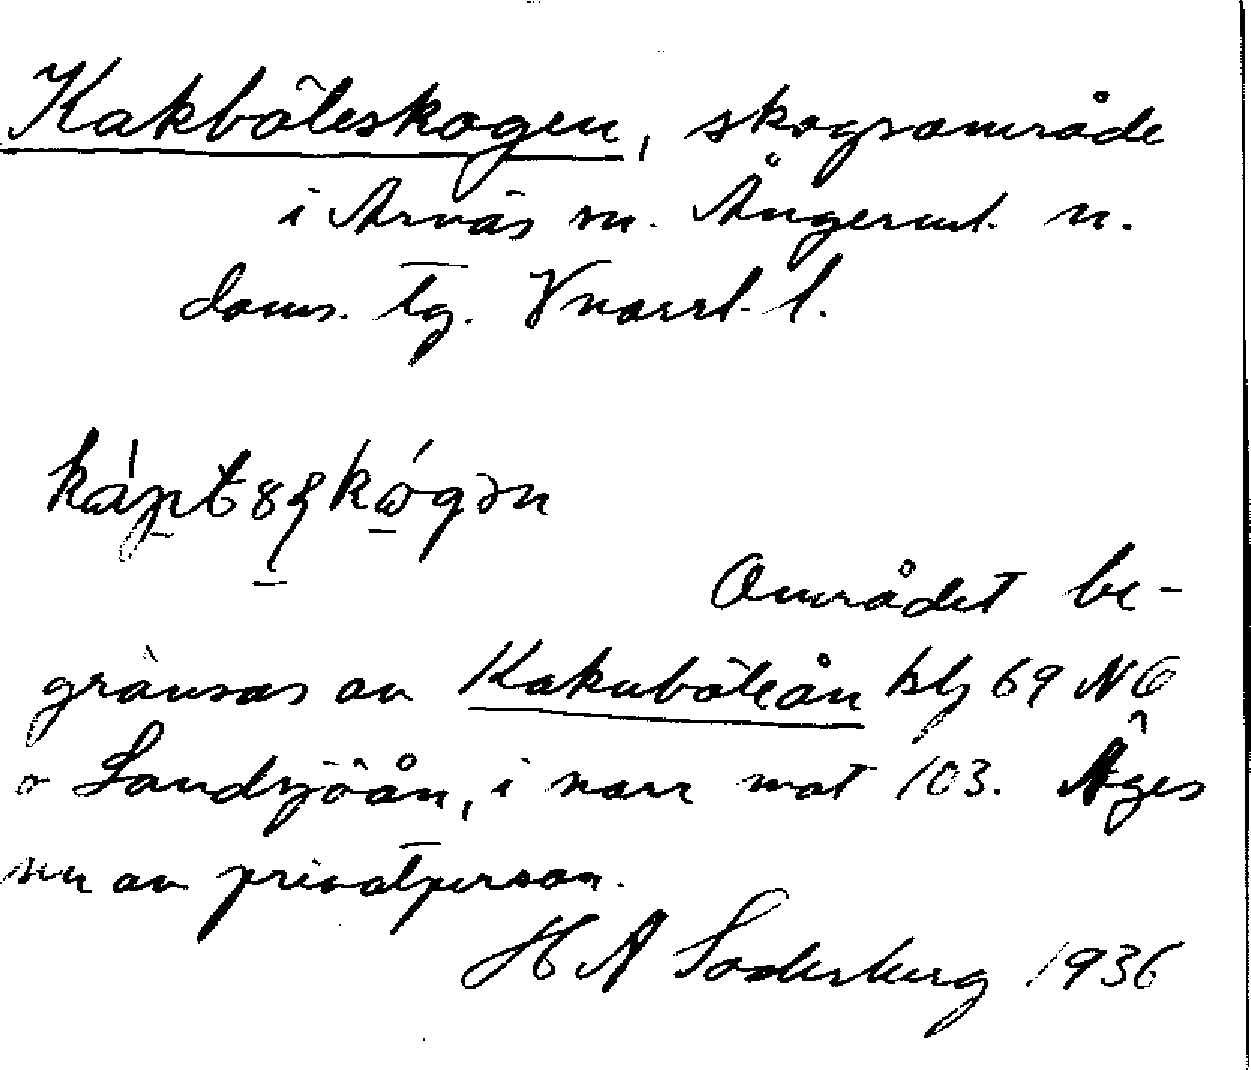 Kakböleskogen, skogsområde
i Arnäs sn. Ångerml. n.
doms. tg. Vnorrl. l.
Området be-
gränsas av Kakuböleån blj 69 NO
o Landsjöån, i norr mot 103. Äges
nu av privatperson.
H A Söderberg 1936